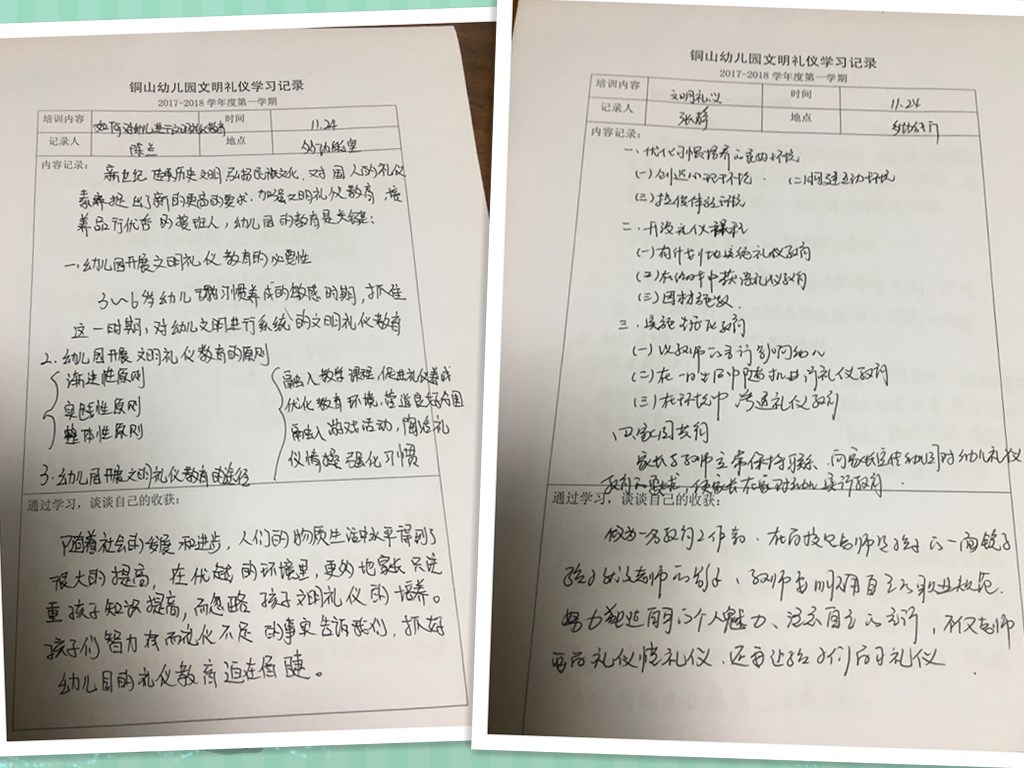 铜山幼儿园文明礼仪学习记录
2017-2018 学年度第一学期
培训内容 如何对幼儿进行文明礼仪教育 时间 11.24
记录人 陈 地点
内容记录:
新世纪 历史文明 民族文化, 对 国人的礼仪
素养提出了新的更高的要求, 加强文明礼仪教育, 培
养品行优秀的接班人, 幼儿园的教育是关键:
一.幼儿园开展文明礼仪教育的必要性
3~6岁幼儿 习惯养成的敏感时期, 抓住
这一时期, 对幼儿文明进行系统的文明礼仪教育
2.幼儿园开展文明礼仪教育的原则
渐进性原则
实践性原则
整体性原则
融入教学课程, 促进礼仪养成
优化教育环境, 营造良好氛围
融入游戏活动, 陶冶礼
仪情操 强化习惯
3.幼儿园开展文明礼仪教育的途径
通过学习，谈谈自己的收获:
随着社会的发展和进步, 人们的物质生活水平得到了
很大的提高, 在优越的环境里, 更多地家长只注
重孩子知识提高, 而忽略孩子文明礼仪的培养。
孩子们智力 而礼仪不足的事实告诉我们, 抓好
幼儿园的礼仪教育迫在眉睫。
铜山幼儿园文明礼仪学习记录
2017-2018 学年度第一学期
培训内容 文明礼仪 时间 11.24
记录人 张 地点
内容记录:
一.优化习惯培养的 环境
(一)创造 环境. (二)构建互动环境
(三)拉伸体验环境
二.开设礼仪课程
(一)有计划地实施礼仪教育
(二)在 中 礼仪教育
(三)因材施教.
三.实施 教育
(一)以教师的言行影响幼儿
(二)在一日生活中随机进行礼仪教育
(三)在环境中渗透礼仪教育
四.家园共育
家长与教师经常保持联系. 向家长宣传幼儿园对幼儿礼仪
教育的要求, 使家长在家对幼儿 教育.
通过学习，谈谈自己的收获:
做为一名教育工作者. 在 老师 孩子的一面镜子
孩子 老师的影子, 教师要明确自己的职业规范.
努力塑造自身的个人魅力、注意自己的言行, 不仅老师
要 礼仪懂礼仪, 还要让孩子们 礼仪.